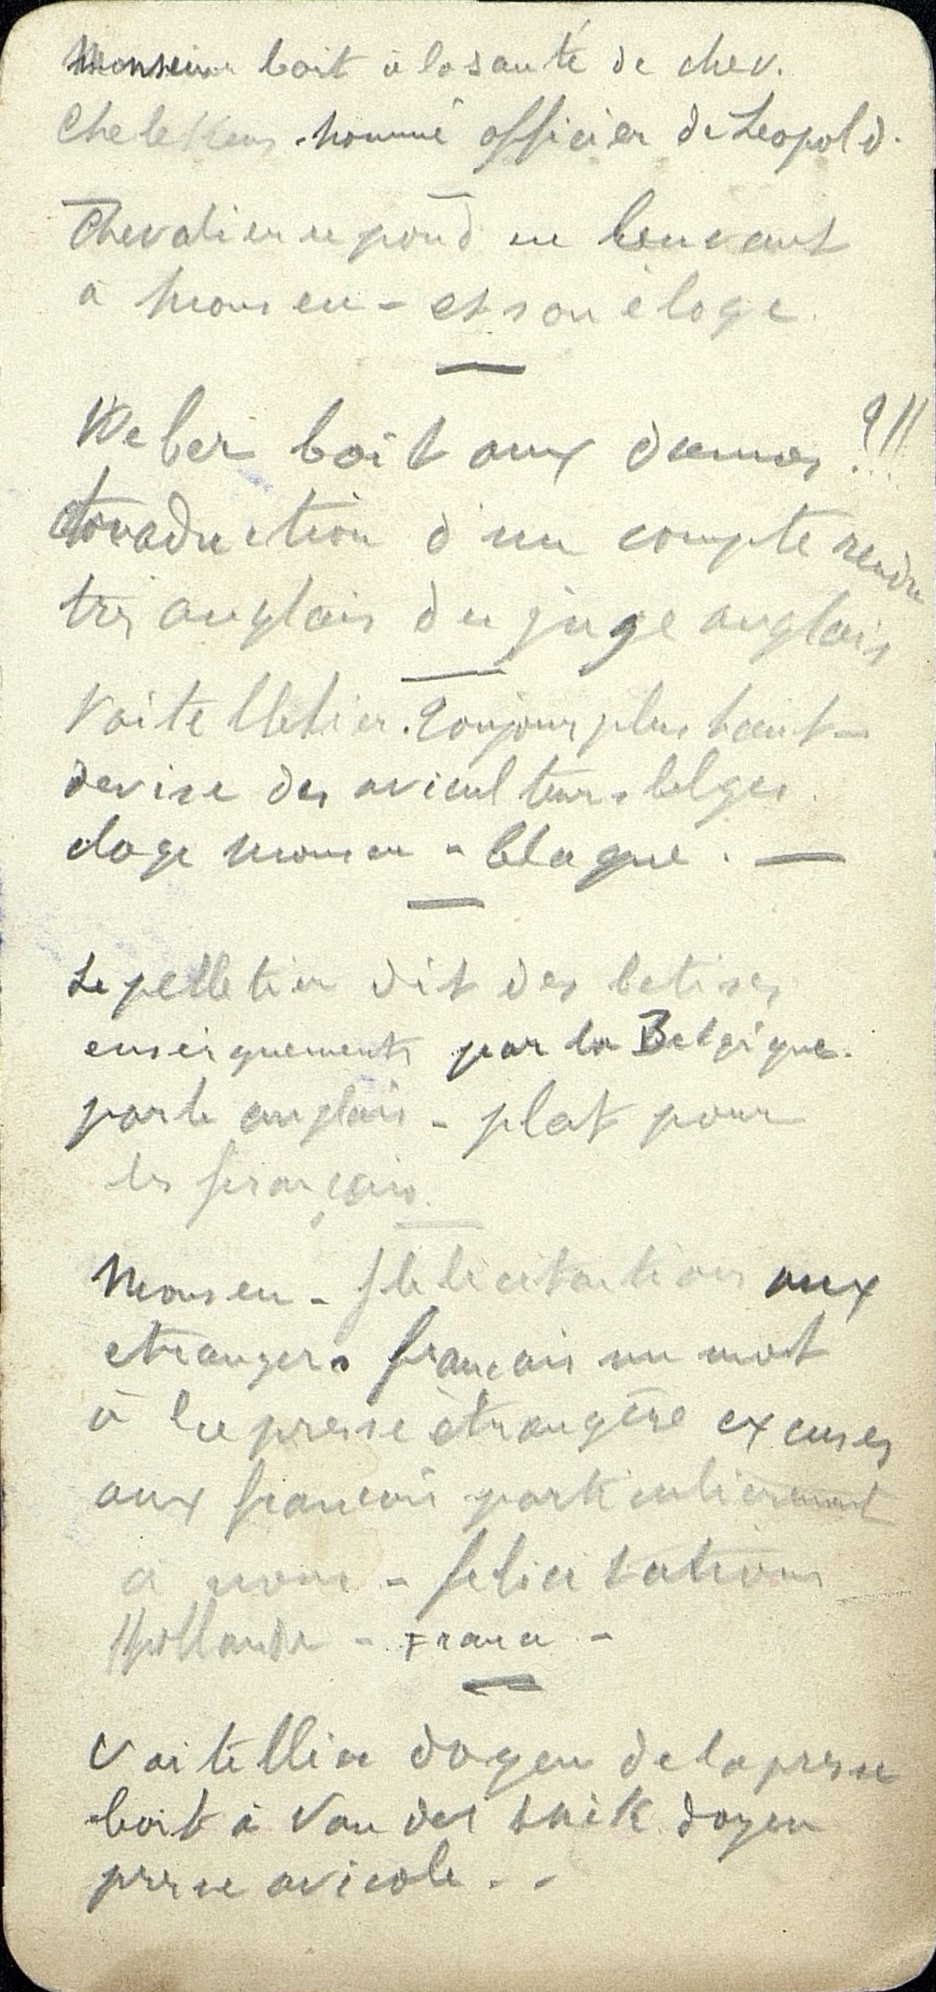 Monseur boit à la santé de chev.
nommé officier de Leopold.
Chevalier repond en beuvant
à Monseu - et son éloge.
Weber boit aux dames !!!
traduction d'un compte rendu
très anglais du juge anglais
Voitellier. Toujours plus haut -
devise des aviculteurs belges.
eloge Monseu - blague. -
Lepelletier dit des betises
enseignements par la Belgique.
parle anglais - plat pour
les français.
Monseu - felicitations aux
etrangers français un mot
à la presse étrangère excuses
aux français particulierement
a nous - felicitations
Hollande - France -
Voitellier doyen de la presse
boit à Van der Snick doyen
presse avicole. -